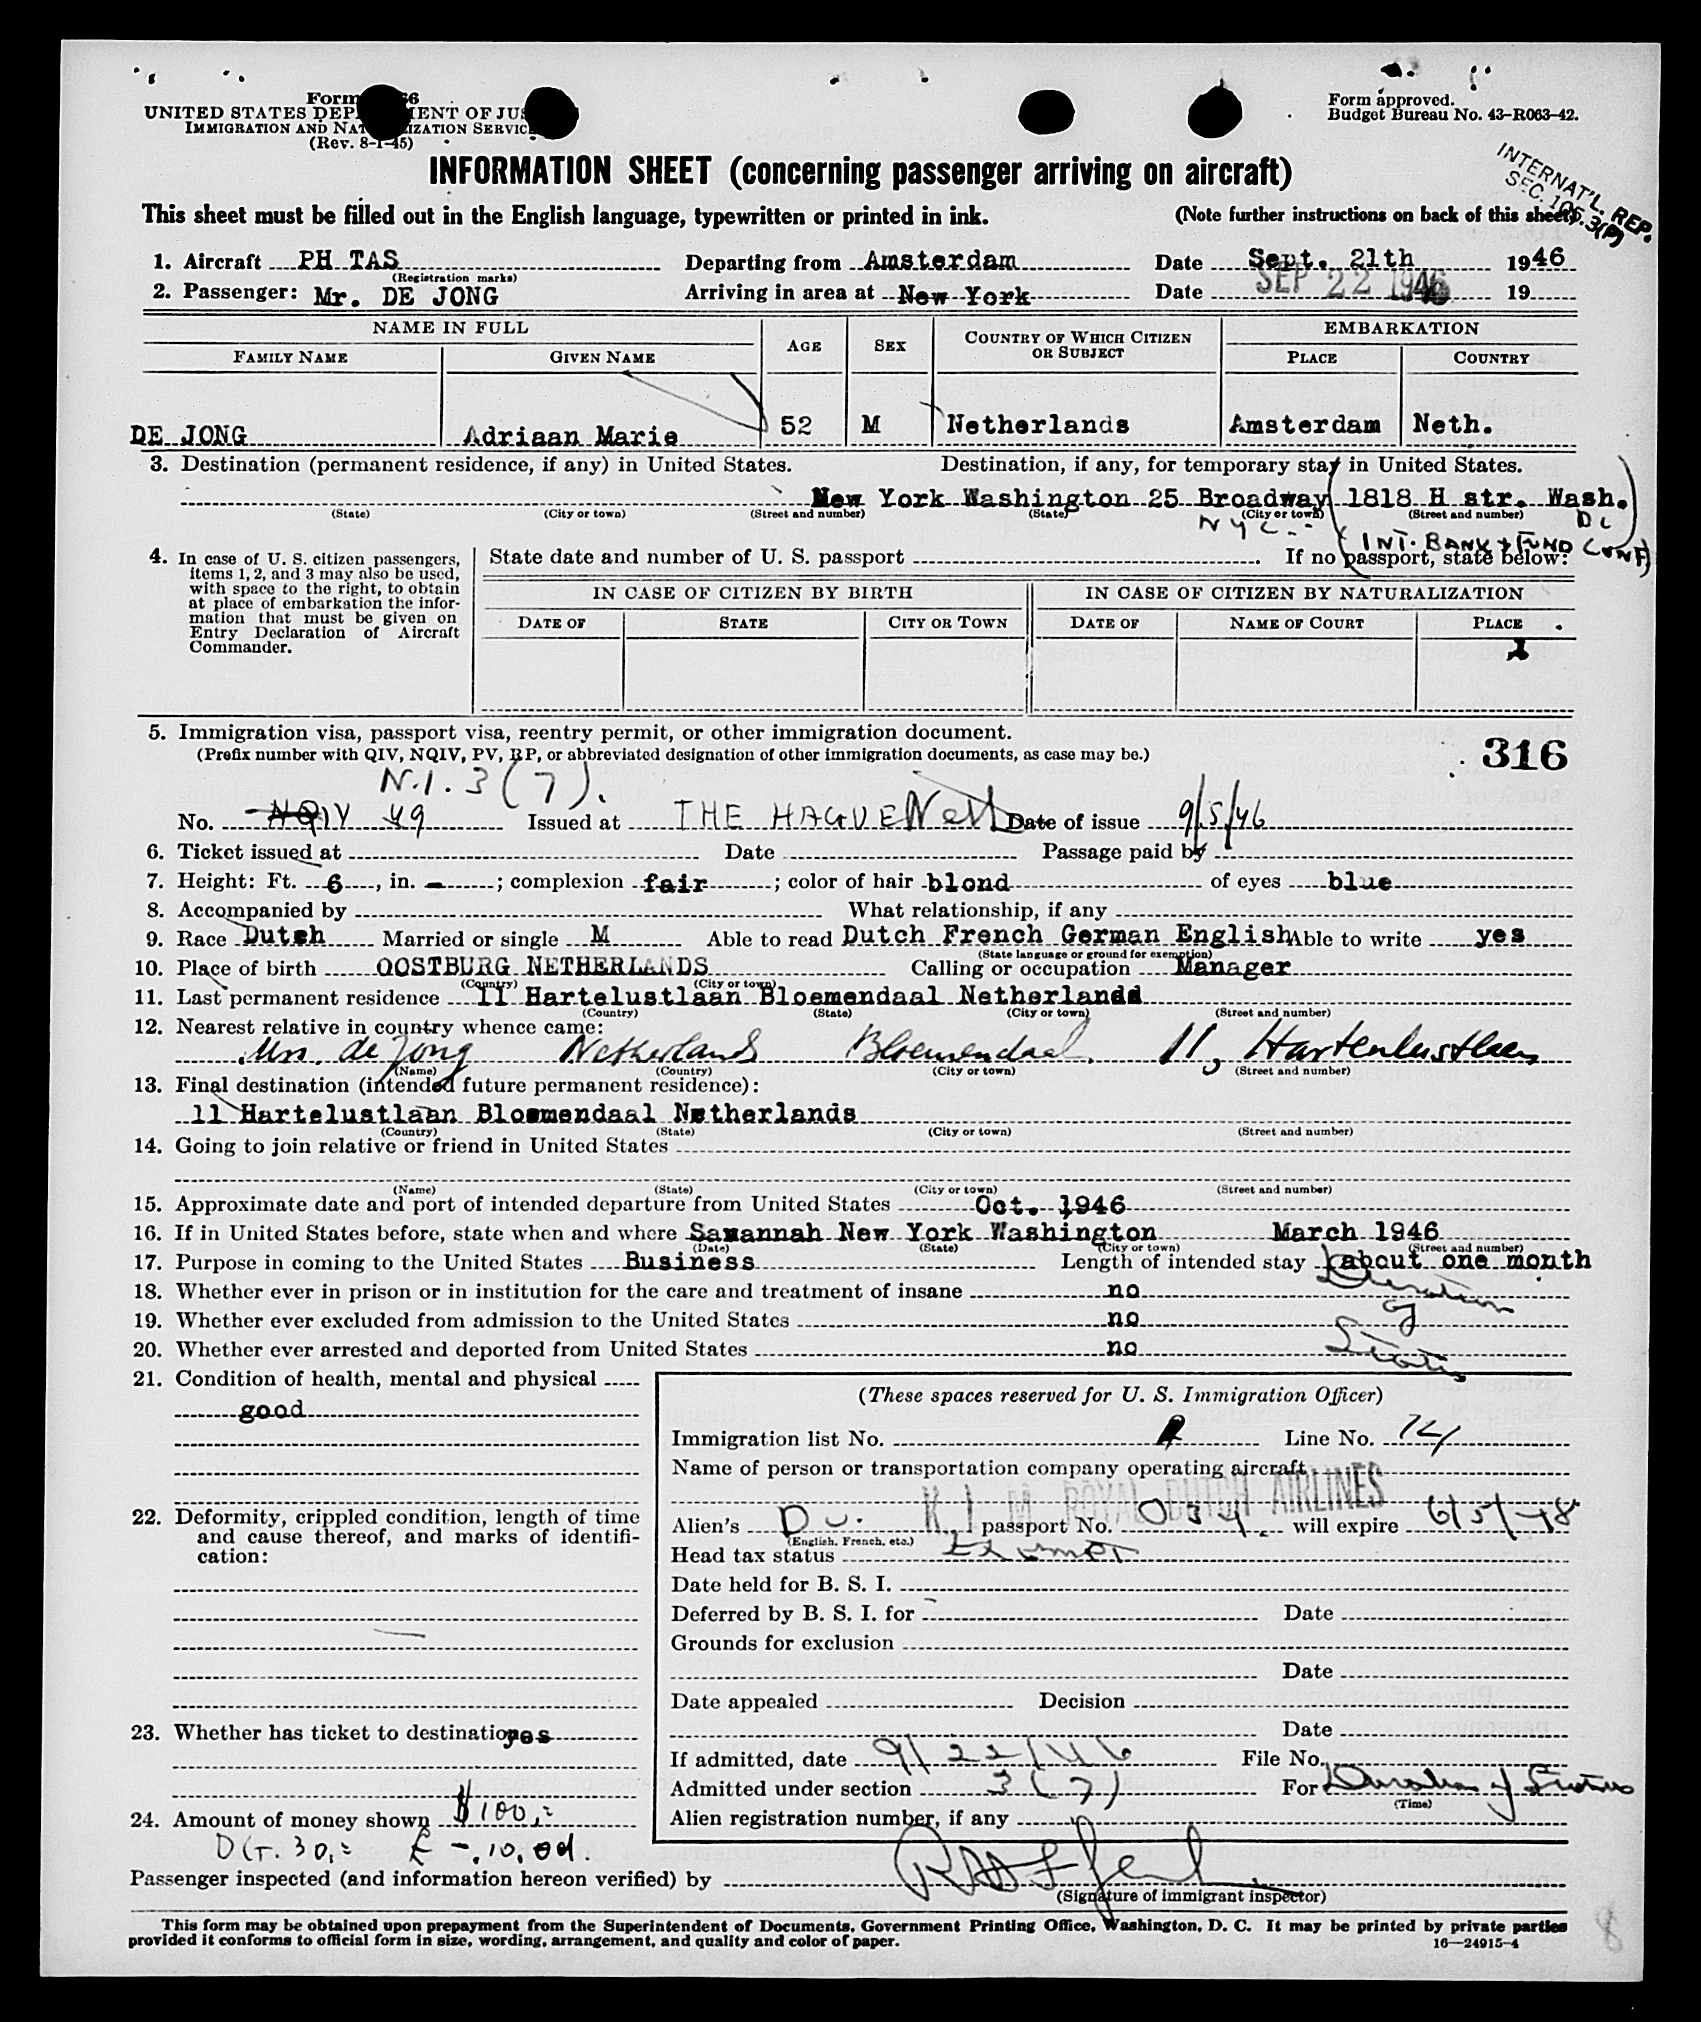 Form 66
UNITED STATES DEP MENT OF JUS
IMMIGRATION AND NAT IZATION SERVICE
(Rev. 8-1-45)
Form approved.
Budget Bureau No. 43-R063-42.
INFORMATION SHEET (concerning passenger arriving on aircraft)
INTERNAT'L. REP.
SEC. 105.3(P)
This sheet must be filled out in the English language, typewritten or printed in ink. (Note further instructions on back of this sheet)
1. Aircraft PH TAS Departing from Amsterdam Date Sept. 21th 1946
(Registration marks)
2. Passenger: Mr. DE JONG Arriving in area at New York Date SEP 22 1946 19
NAME IN FULL
AGE SEX COUNTRY OF WHICH CITIZEN OR SUBJECT EMBARKATION
FAMILY NAME GIVEN NAME PLACE COUNTRY
DE JONG Adriaan Marie 52 M Netherlands Amsterdam Neth.
3. Destination (permanent residence, if any) in United States. Destination, if any, for temporary stay in United States.
New York Washington 25 Broadway (1818 H str. Wash.)
(State) (City or town) (Street and number) (State) (City or town) (Street and number)
NYC. DC
(INT. BANK + FUND CONF)
4. In case of U. S. citizen passengers, items 1, 2, and 3 may also be used, with space to the right, to obtain at place of embarkation the information that must be given on Entry Declaration of Aircraft Commander.
State date and number of U. S. passport . If no passport, state below:
IN CASE OF CITIZEN BY BIRTH IN CASE OF CITIZEN BY NATURALIZATION
DATE OF STATE CITY OR TOWN DATE OF NAME OF COURT PLACE
1
5. Immigration visa, passport visa, reentry permit, or other immigration document.
(Prefix number with QIV, NQIV, PV, RP, or abbreviated designation of other immigration documents, as case may be.)
316
N.I. 3(7).
No. NQIV 49 Issued at THE HAGUE Neth Date of issue 9/5/46
6. Ticket issued at Date Passage paid by
7. Height: Ft. 6, in. -; complexion fair; color of hair blond of eyes blue
8. Accompanied by What relationship, if any
9. Race Dutch Married or single M Able to read Dutch French German English Able to write yes
(State language or ground for exemption)
10. Place of birth OOSTBURG NETHERLANDS Calling or occupation Manager
(Country) (City or town)
11. Last permanent residence 11 Hartelustlaan Bloemendaal Netherlands
(Country) (State) (City or town) (Street and number)
12. Nearest relative in country whence came:
Mrs. de Jong Netherlands Bloemendaal. 11, Hartenlustlaan
(Name) (Country) (City or town) (Street and number)
13. Final destination (intended future permanent residence):
11 Hartelustlaan Bloemendaal Netherlands
(Country) (State) (City or town) (Street and number)
14. Going to join relative or friend in United States
(Name) (State) (City or town) (Street and number)
15. Approximate date and port of intended departure from United States Oct. 1946
16. If in United States before, state when and where Savannah New York Washington March 1946
(Date) (State) (City or town) (Street and number)
17. Purpose in coming to the United States Business Length of intended stay about one month
Duration
of
Status
18. Whether ever in prison or in institution for the care and treatment of insane no
19. Whether ever excluded from admission to the United States no
20. Whether ever arrested and deported from United States no
21. Condition of health, mental and physical
good
22. Deformity, crippled condition, length of time and cause thereof, and marks of identification:
23. Whether has ticket to destination yes
24. Amount of money shown $100,=
Dct. 30,= £ -.10.0d.
(These spaces reserved for U. S. Immigration Officer)
Immigration list No. Line No. 14
Name of person or transportation company operating aircraft
K L M ROYAL DUTCH AIRLINES
Alien's Du. passport No. 034 will expire 6/5/48
(English, French, etc.)
Head tax status Exempt
Date held for B. S. I.
Deferred by B. S. I. for Date
Grounds for exclusion
Date
Date appealed Decision
Date
If admitted, date 9/22/46 File No.
Admitted under section 3(7) For Duration of Status
(Time)
Alien registration number, if any
Passenger inspected (and information hereon verified) by
(Signature of immigrant inspector)
This form may be obtained upon prepayment from the Superintendent of Documents, Government Printing Office, Washington, D. C. It may be printed by private parties
provided it conforms to official form in size, wording, arrangement, and quality and color of paper.
16—24915-4
8